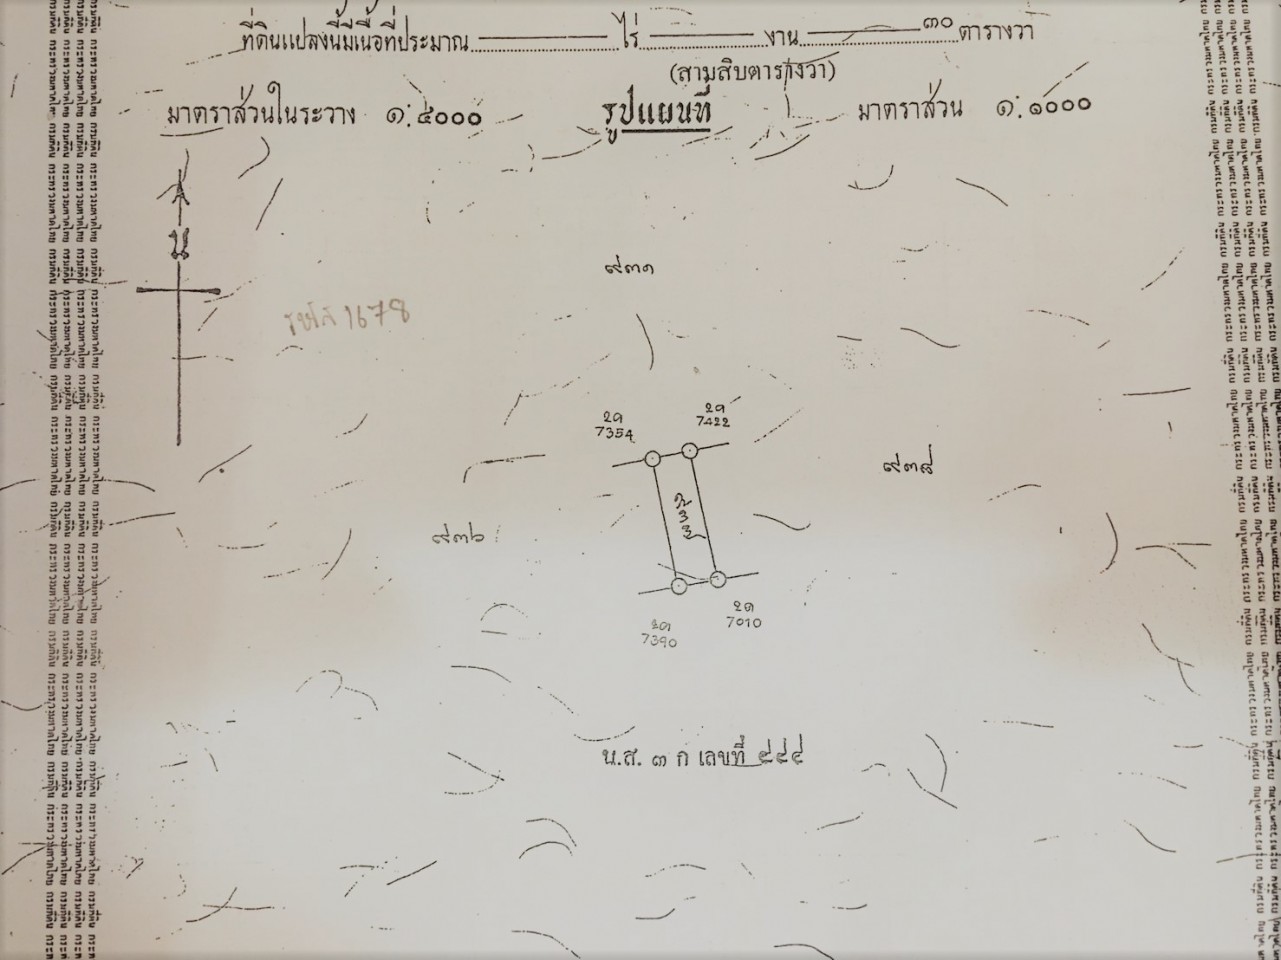 ที่ดินแปลงนี้มีเนื้อที่ประมาณ ไร่ งาน ๓๐ ตารางวา
(สามสิบตารางวา)
มาตราส่วนในระวาง ๑:๕๐๐๐ รูปแผนที่ มาตราส่วน ๑:๑๐๐๐
น
๙๓๑
1678
๒๑ 7354
๒๑ 7422
๙๓๕
๙๓๖
๒๑ 7390
๒๑ 7010
น.ส. ๓ ก เลขที่ ๔๔๔
กรมที่ดิน กระทรวงมหาดไทย